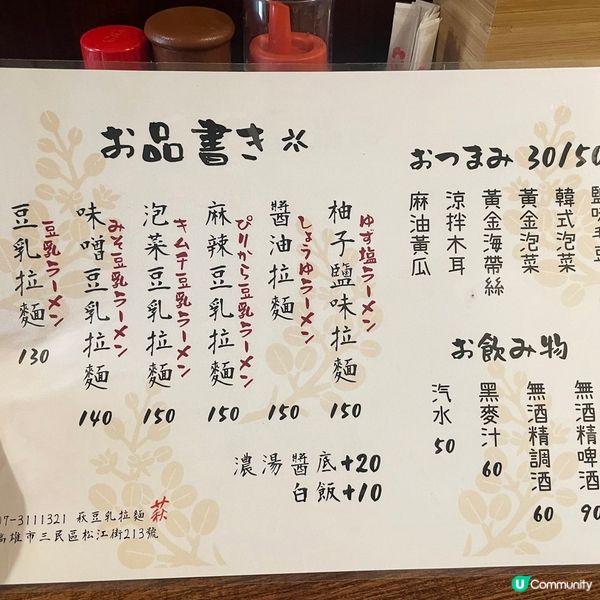 お品書き
柚子鹽味拉麵
ゆず塩ラーメン
150
醬油拉麵
しょうゆラーメン
150
麻辣豆乳拉麵
ぴりから豆乳ラーメン
150
泡菜豆乳拉麵
キムチ豆乳ラーメン
150
味噌豆乳拉麵
みそ豆乳ラーメン
140
豆乳拉麵
豆乳ラーメン
130
濃湯醬底+20
白飯+10
おつまみ 30/50
鹽味毛豆
韓式泡菜
黃金泡菜
黃金海帶絲
涼拌木耳
麻油黃瓜
お飲み物
無酒精啤酒
90
無酒精調酒
60
黑麥汁
60
汽水
50
07-3111321 萩豆乳拉麵 萩
高雄市三民區松江街213號
U Community